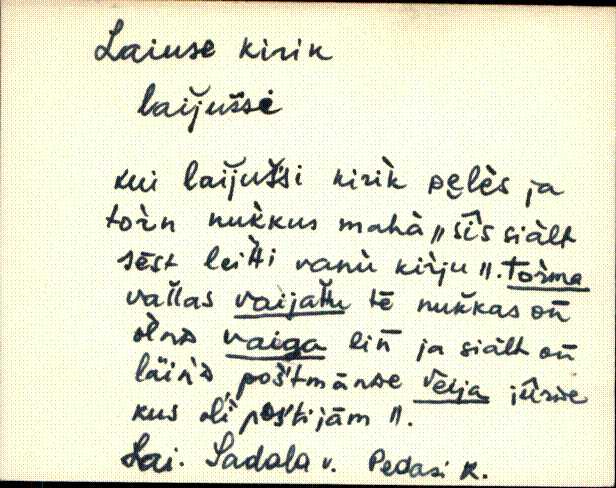 Laiuse kirik
laĭjušši
kui laĭjušši kirìk pęlès ja
torǹ nukkus mahà „sîs siàlt
sēst leitti vanù kiŕju”. Torma
vallas vaijattu tē nukkas oñ
olnᴅ vaiga liñ ja siàlt oñ
läinᴅ poštmānᴅe Velja jûrᴅe
kus oli poštijām”.
Lai. Sadala v. Pedasi k.